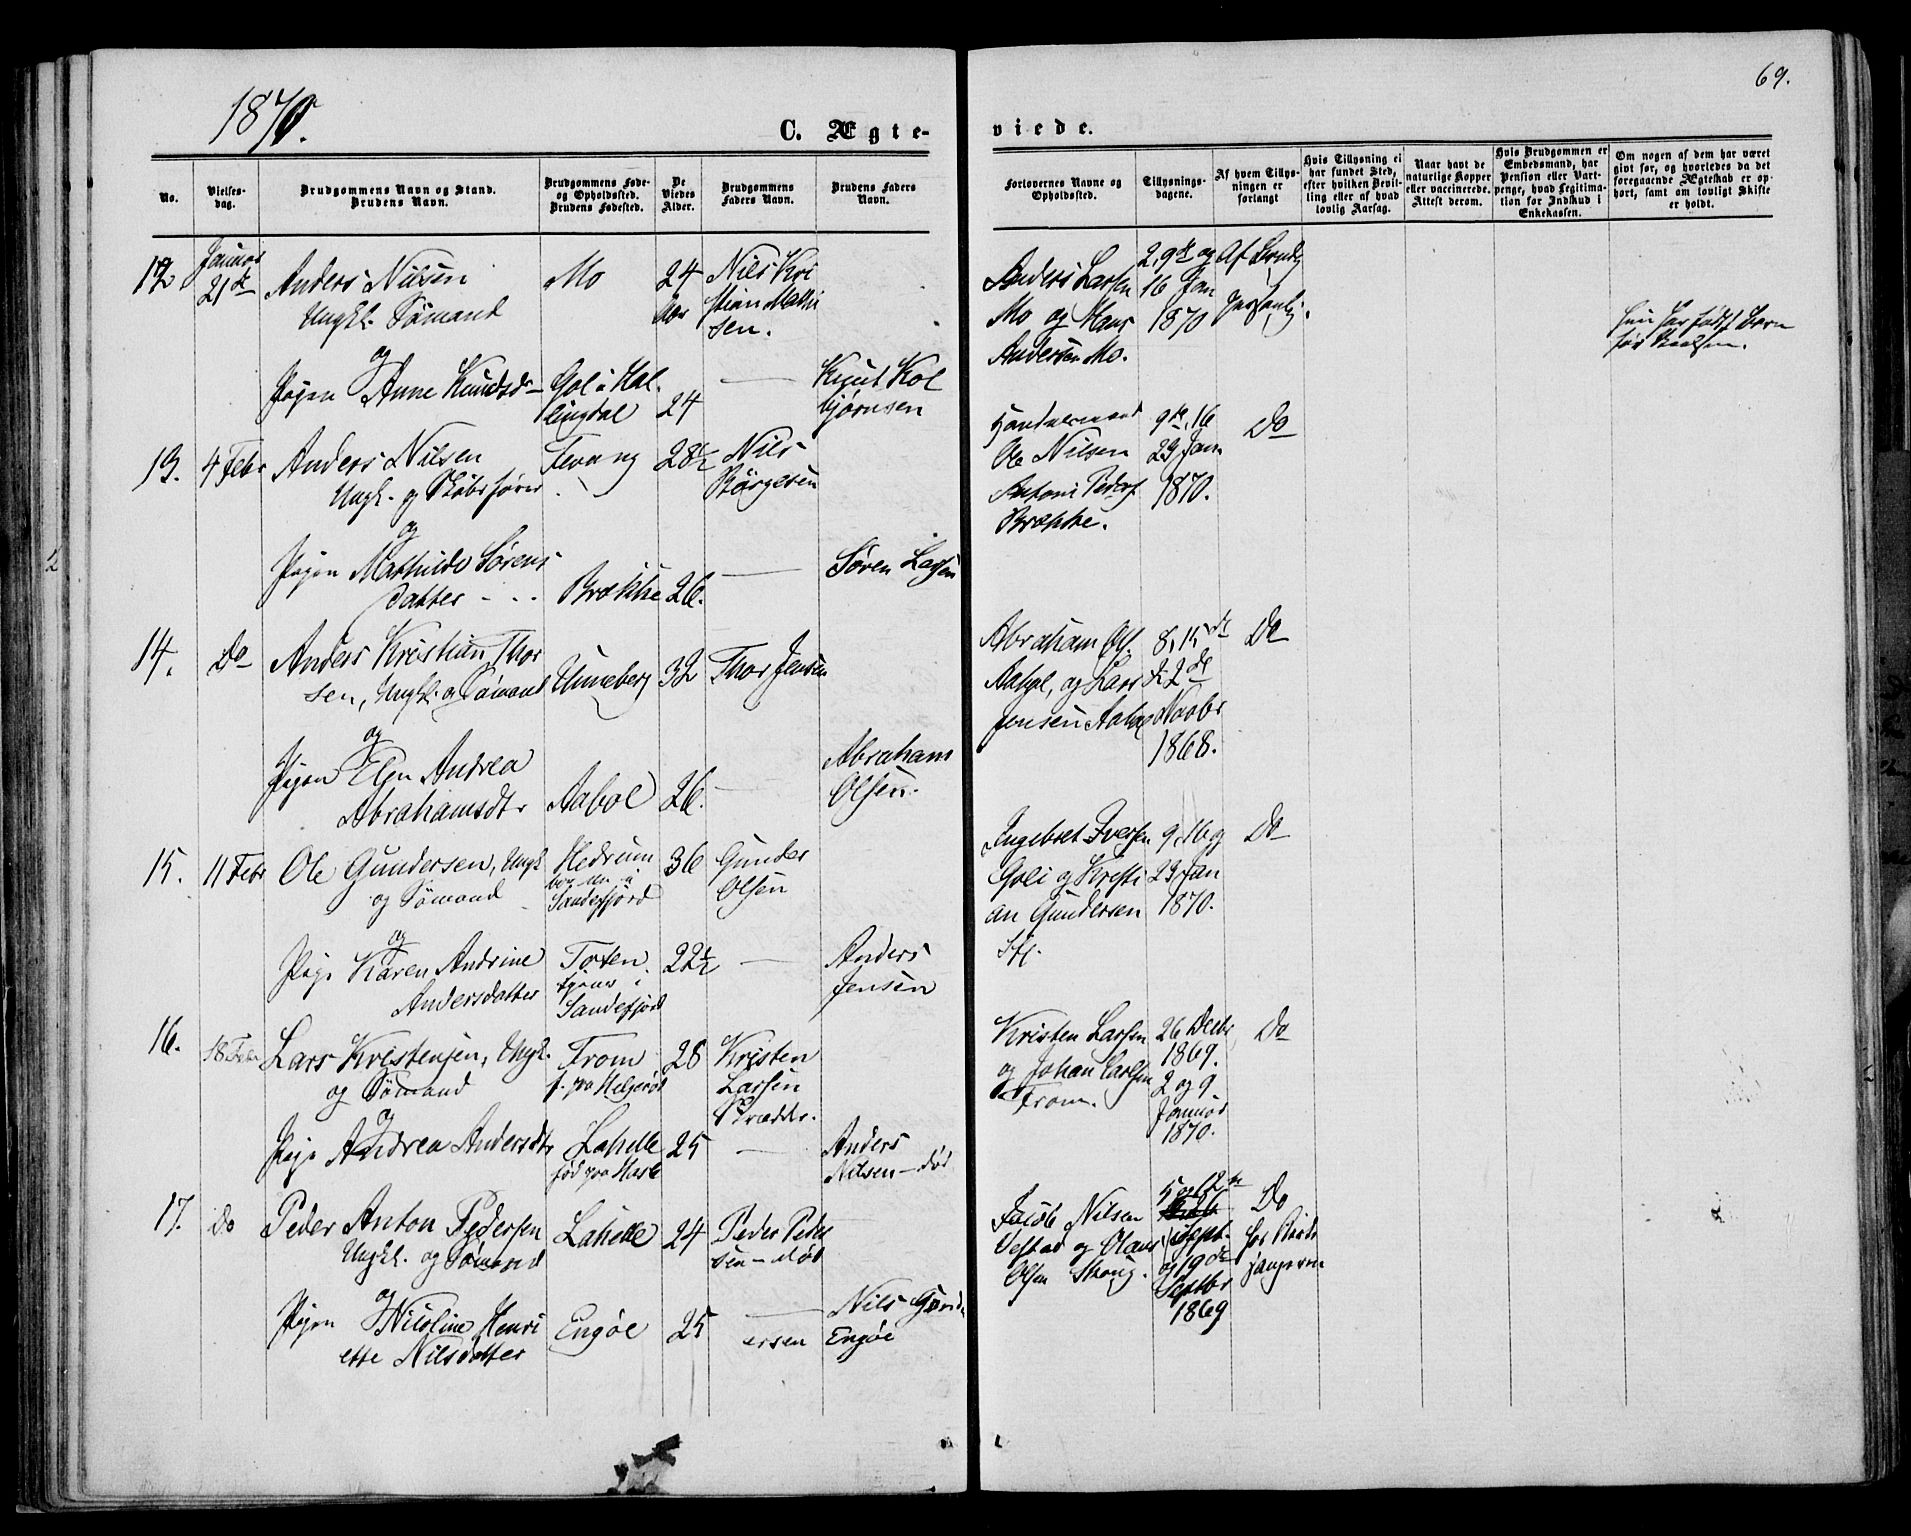 1870.
69.
C. Ægte-
viede.
No.
Vielses-
dag.
Brudgommens Navn og Stand.
Brudens Navn.
Brudgommens Føde-
og Opholdssted.
Brudens Fødested.
De
Viedes
Alder.
Brudgommens
Faders Navn.
Brudens Faders
Navn.
Forlovernes Navne og
Opholdssted.
Tillysnings-
dagene.
Af hvem Tillys-
ningen er
forlangt
Hvis Tillysning ei
har fundet Sted,
efter hvilken Bevil-
ling eller af hvad
lovlig Aarsag.
Naar havt de
naturlige Kopper
eller vaccinerede.
Attest derom.
Hvis Brudgommen er
Embedsmand, har
Pension eller Vart-
penge, hvad Legitima-
tion for Indskud i
Enkekassen.
Om nogen af dem har været
gift før, og hvorledes da det
foregaaende Ægteskab er op-
hørt, samt om lovligt Skifte
er holdt.
12
Januar
21de
Anders Nilsen
Ungkl. Sømand
og
Pigen Anne Knudsdr
Mo
Gol i Hal-
lingdal
24
Aar
24
Nils Kri
stian Mathi
sen.
Knut Kol
bjørnsen
Anders Larsen
Mo og Hans
Andersen Mo.
2, 9de og
16 Jan
1870
Af Brudg
personlig.
Hun har født Barn
før Vielsen.
13.
4 Febr
Anders Nilsen
Ungk. og Skibsfører
og
Pigen Mathilde Sørens
datter
Tevang
Brække
28½
26.
Nils
Børgesen
Søren Larsen
Ole Nilsen
Antoni Peders
Brække.
9de, 16
23 Jan
1870.
Do
14.
Do
Anders Kristian Thor
sen, Ungk. og Sømand
og
Pigen Elen Andrea
Abrahamsdtr
Unneberg
Aabol
32
26.
Thor Jensen
Abraham
Olsen.
Abraham Ols.
Aabol, og Lars
Jensen Aabol
8, 15de
& 22de
Novbr
1868.
Do
15.
11 Febr
Ole Gundersen, Ungk
og Sømand
og
Pige Karen Andrine
Andersdatter
Hedrum
bor nu i
Sandefjord
Toten
tjener i
Sandefjord
36
22½
Gunder
Olsen
Anders
Jensen
Ingebret Iversen
Goli og Kristi
an Gundersen
Sfj.
9, 16 og
23 Jan
1870.
Do
16.
18 Febr
Lars Kristensen, Ungk.
og Sømand
og
Pige Andrea Andersdtr
From
f. paa Helgerød
Lahelle
fød paa Hasle
28
25
Kristen
Larsen
Skrædder.
Anders
Nilsen - død
Kristen Larsen
og Johan Carlsen
From.
26 Decbr
1869.
2 og 9
Januar
1870.
Do
17.
Do
Peder Anton Pedersen
Ungkl. og Sømand
og
Pigen Nicoline Henri
ette Nilsdatter
Lahelle
Engøe
24
25
Peder Peder
sen - død
Nils Gund-
ersen Engøe
Jacob Nilsen
Vestad og Olaus
Olsen Skoug.
5 og 12te
Sept.
og 19de
Septbr
1869
Do